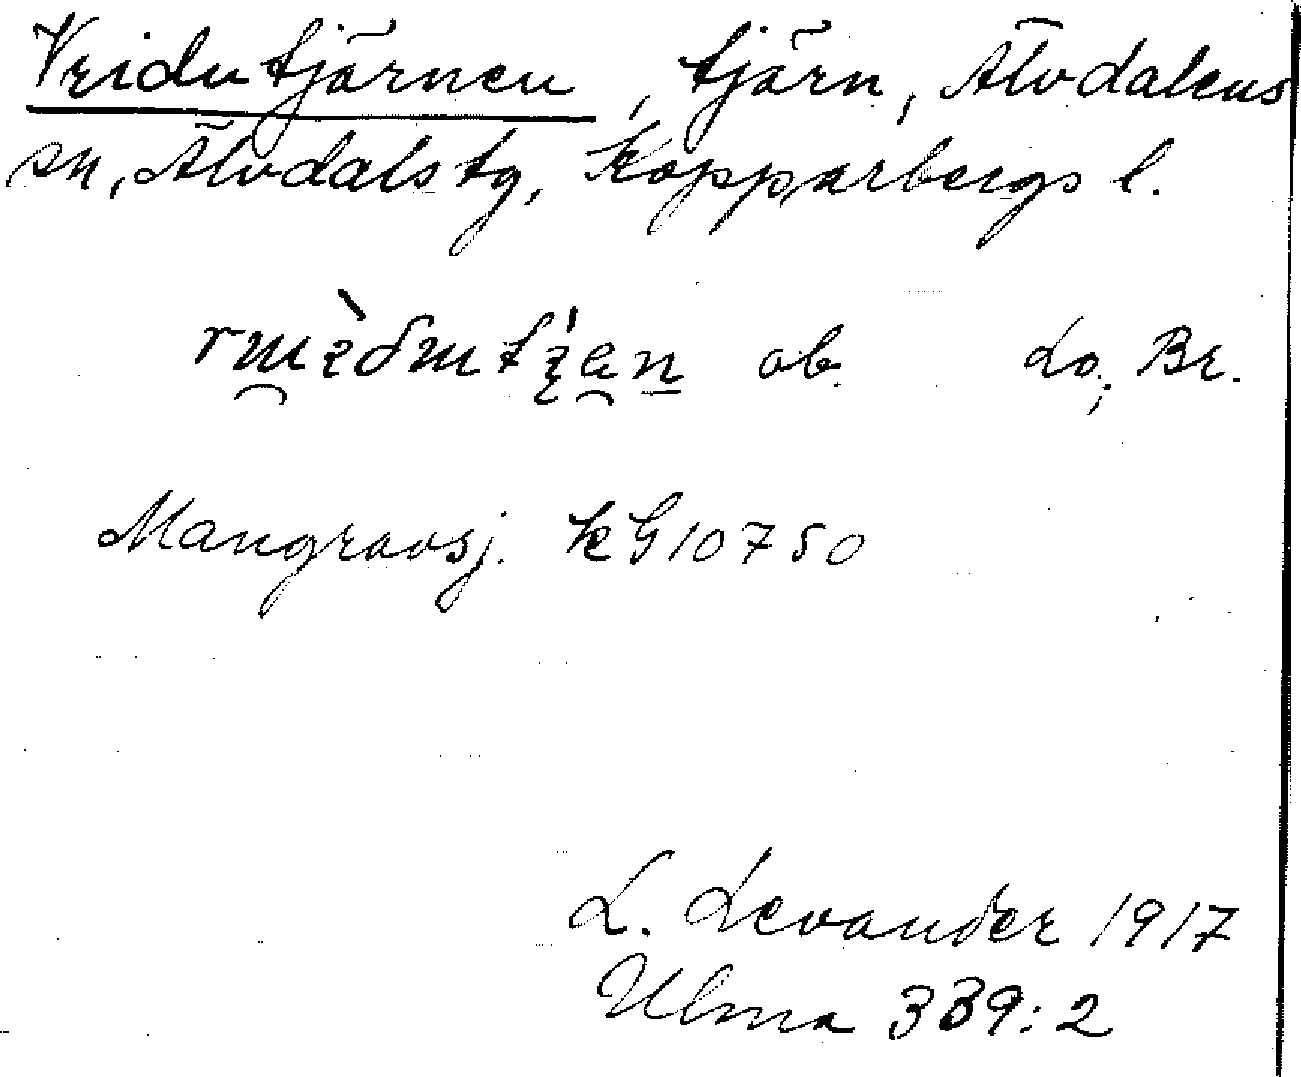 Vridutjärnen, tjärn, Älvdalens
sn, Älvdals tg, Kopparbergs l.
ob. Lo; Br.
Mangravsj. kG 10750
L. Levander 1917
Ulma 339:2